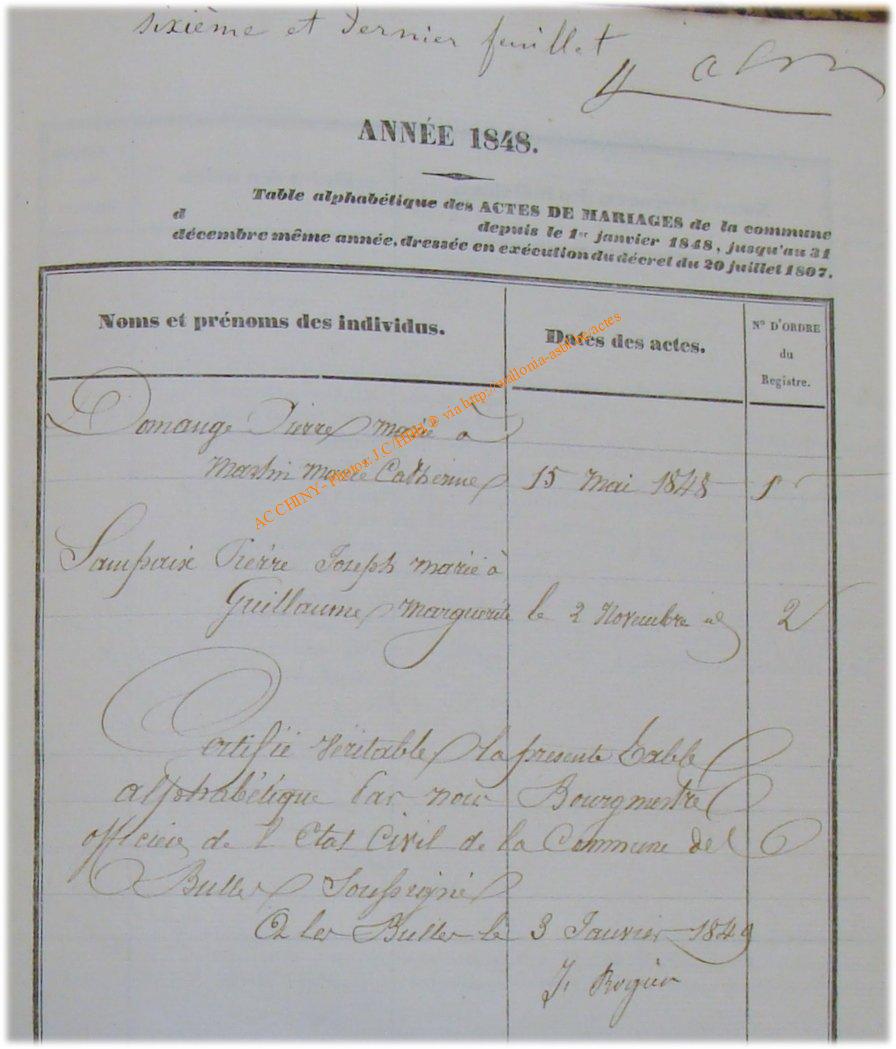 sixième et dernier feuillet
ANNÉE 1848.
Table alphabétique des ACTES DE MARIAGES de la commune
d depuis le 1er janvier 1848, jusqu'au 31
décembre même année, dressée en exécution du décret du 20 juillet 1807.
Noms et prénoms des individus. Dates des actes. N° D'ORDRE
du
Registre.
Domange Pierre marié à
Martin Marie Catherine 15 Mai 1848 1
Lampaix Pierre Joseph marié à
Guillaume Marguerite le 2 Novembre id 2
Certifié Véritable la présente table
alphabétique par nous Bourgmestre
officier de l Etat Civil de la Commune de
Bulles Soussigné
A les Bulles le 3 Janvier 1849
J. Rogier
AC CHINY - Photos J.C Hitti ® via http://wallonia-asbl.be/actes